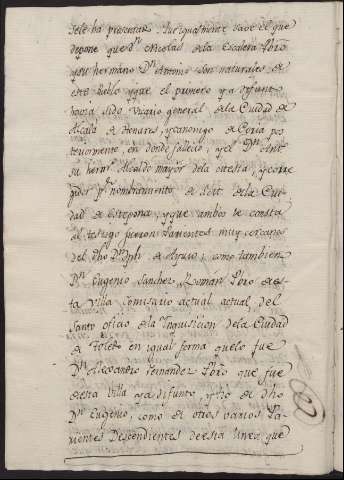 sele ha presentar. Que igualmente save el que
depone que Dn. Nicolas de la Escalera Pbro
y su hermano Dn. Antonio son naturales de
este Pueblo y que el primero ya difunto
havia sido Vicario general de la Ciudad de
Alcala de Henares, y canonigo de Coria pos
teriormente, en donde fallecio, y el Dn. Anto
su herno. Alcalde mayor de la
gidor pr. nombramiento de de la Ciu
dad de Estepona, y que ambos le consta
al testigo fueron Parientes muy cercanos
del dho Dn. Jph de como tambien
Dn. Eugenio Sanchez Roman Pbro de es
ta Villa Comisario actual, actual, del
Santo oficio de la Inquisicion de la Ciudad
de Toledo en igual forma que lo fue
Dn. Alexandro Fernandez Pbro que fue
de esta Villa ya difunto, y tio de dho
Dn. Eugenio; como de otros varios Pa
rientes Descendientes de esta Linea que